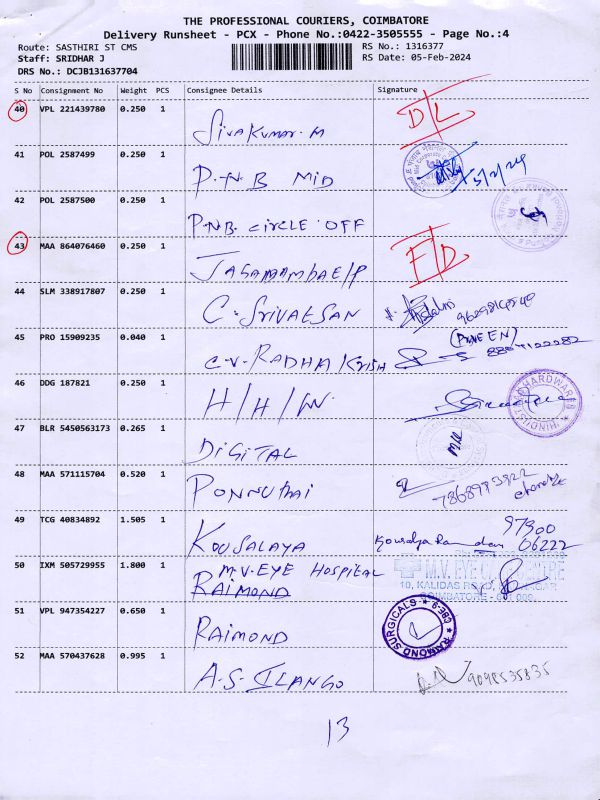 THE PROFESSIONAL COURIERS, COIMBATORE
Delivery Runsheet - PCX - Phone No.:0422-3505555 - Page No.:4
Route: SASTHIRI ST CMS
RS No.: 1316377
Staff: SRIDHAR J
RS Date: 05-Feb-2024
DRS No.: DCJB131637704
S No Consignment No Weight PCS Consignee Details Signature
40 VPL 221439780 0.250 1 Sivakumar.M D/L
41 POL 2587499 0.250 1 P.N.B MID 5/2/24
42 POL 2587500 0.250 1 P.N.B. circle OFF
43 MAA 864076460 0.250 1
44 SLM 338917807 0.250 1 C. SrivatSAN
45 PRO 15909235 0.040 1 C.V. RADHA/Krish
46 DDG 187821 0.250 1 H/H/W HINDUSTAN HARDWARES
47 BLR 5450563173 0.265 1 DIGITAL
48 MAA 571115704 0.520 1 Ponnuthai
49 TCG 40834892 1.505 1 KOUSALAYA 97900
06222
50 IXM 505729955 1.800 1 M.V-EYE HOSPITAL M.V. EYE
RAIMOND 10, KALIDAS
COIMBATORE
51 VPL 947354227 0.650 1 RAIMOND RAIMOND SURGICALS CBE-9
52 MAA 570437628 0.995 1 A.S. ILANGO 9098535835
13